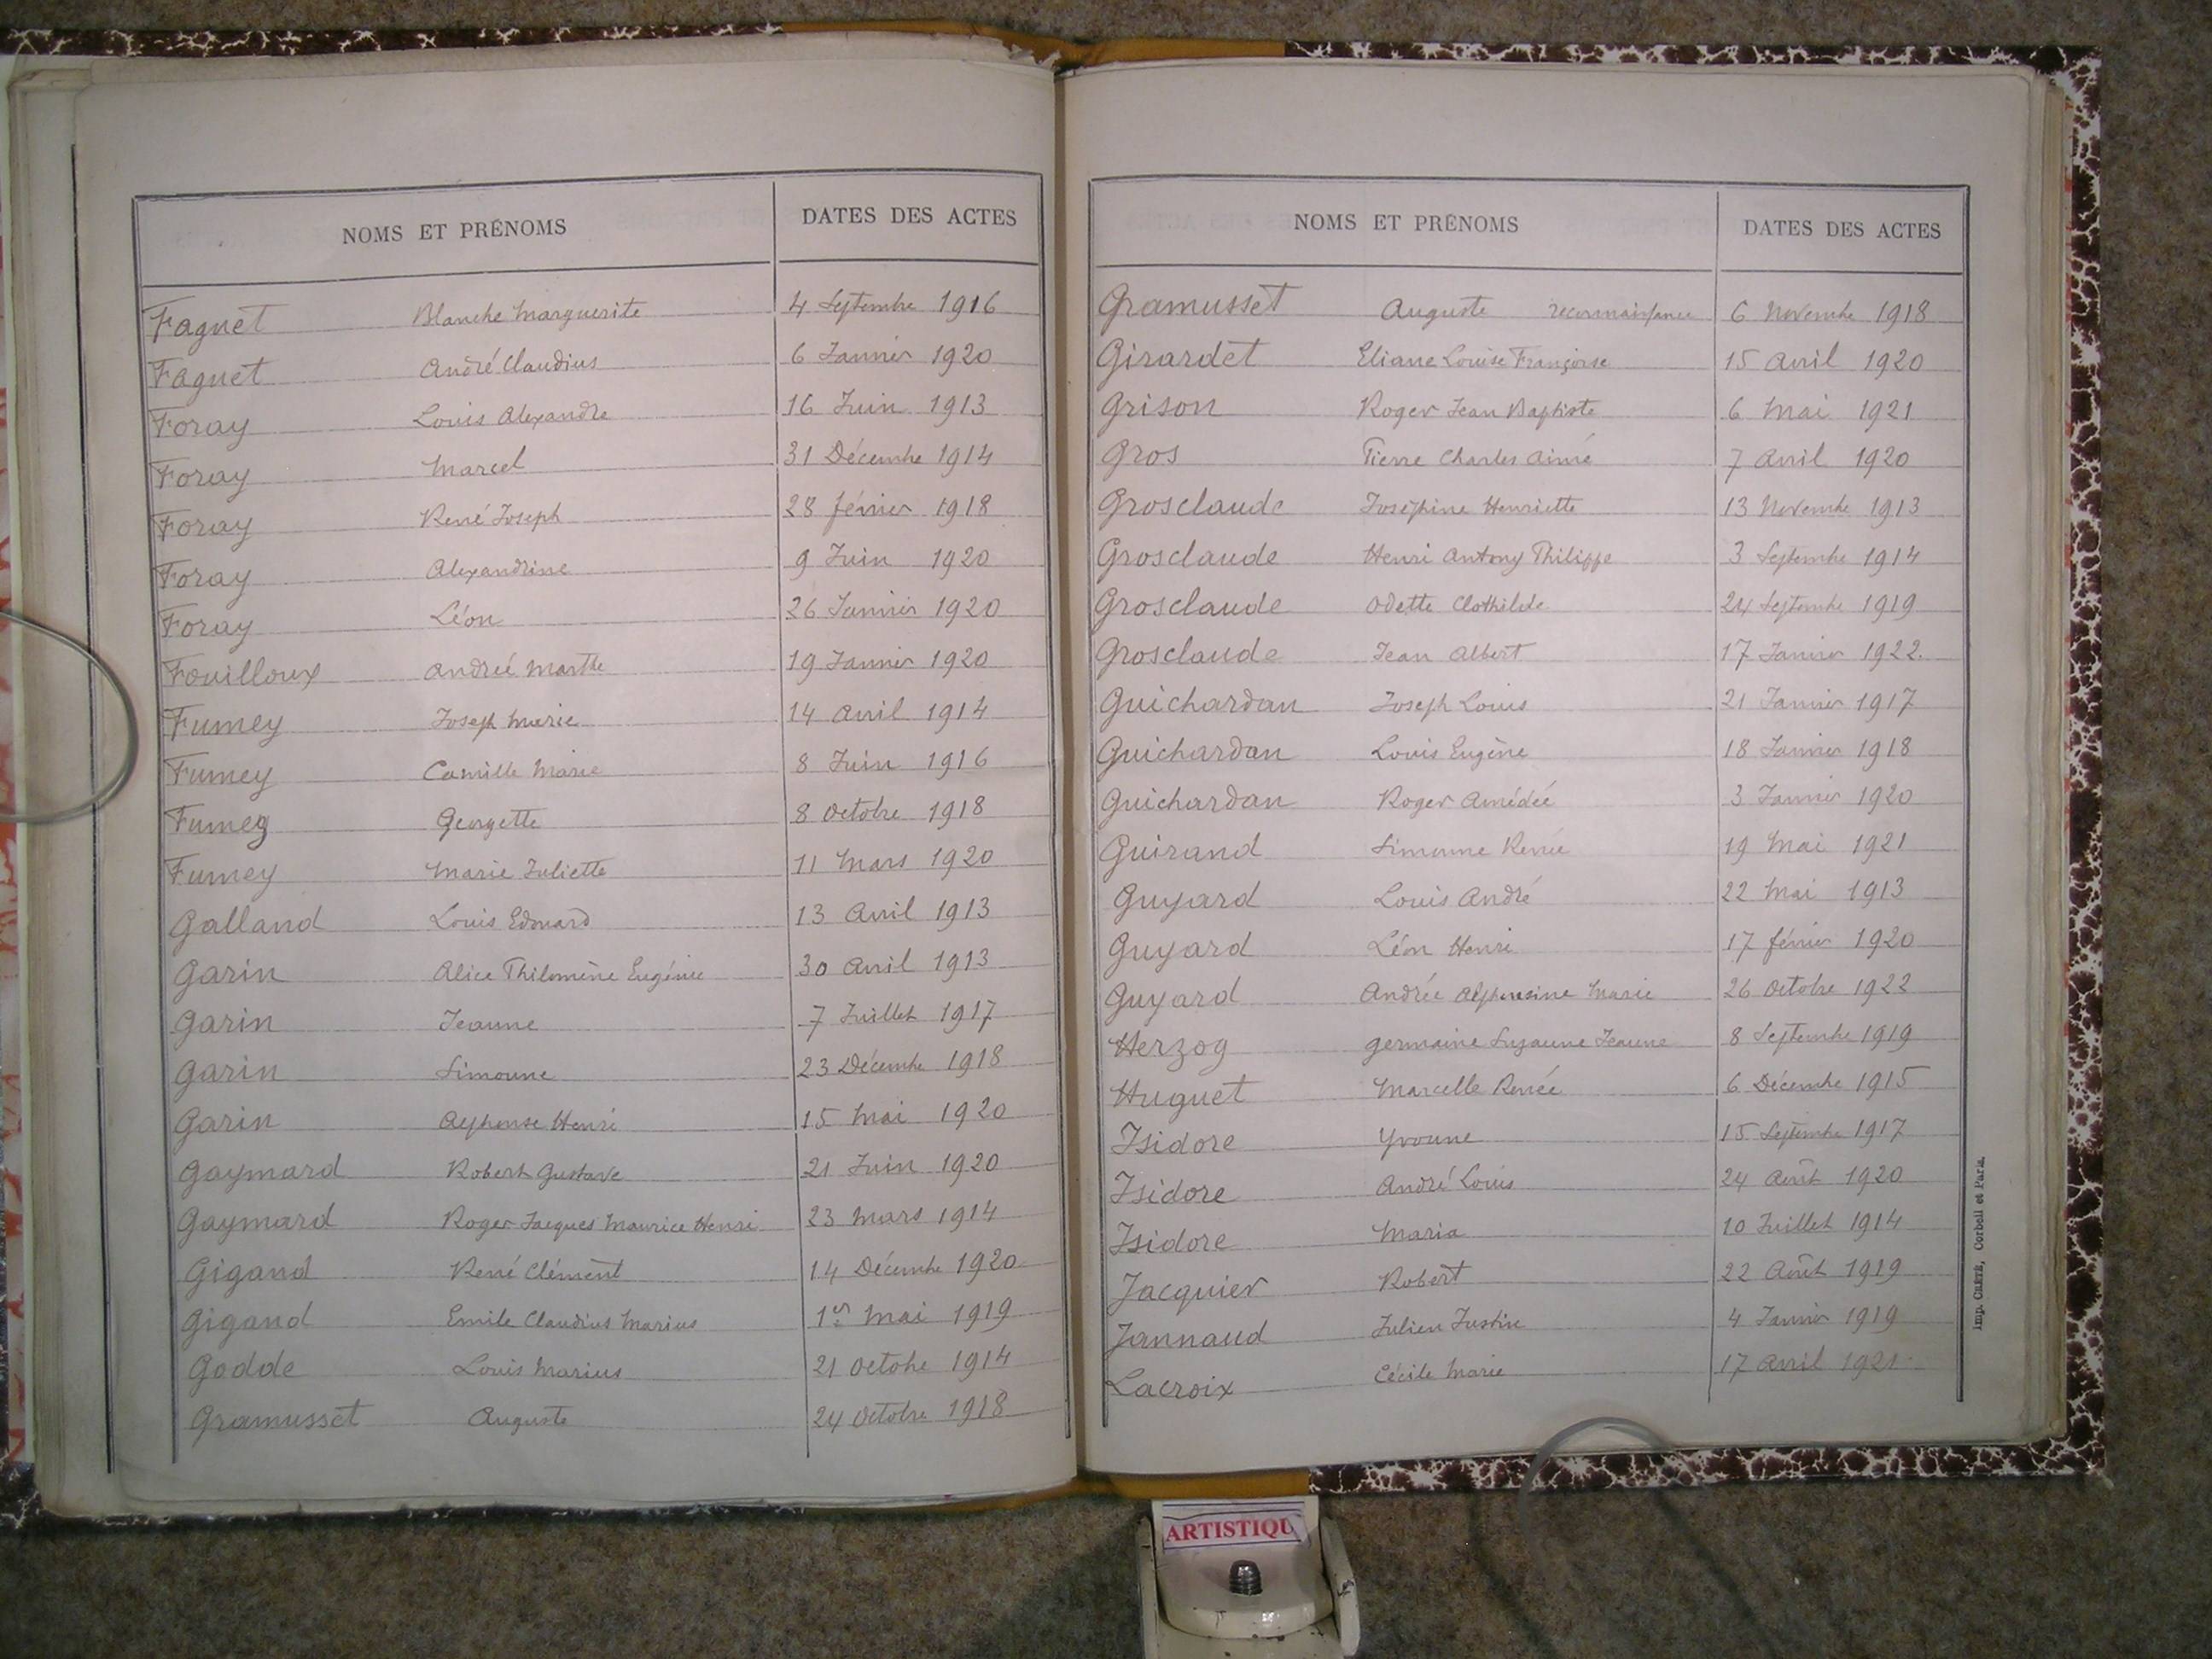 NOMS ET PRÉNOMS DATES DES ACTES
Faguet Blanche Marguerite 4 Septembre 1916
Faguet André Claudius 6 Janvier 1920
Foray Louis Alexandre 16 Juin 1913
Foray Marcel 31 Décembre 1914
Foray René Joseph 28 février 1918
Foray Alexandrine 9 Juin 1920
Foray Léon 26 Janvier 1920
Fouilloux Andreé Marthe 19 Janvier 1920
Fumey Joseph Marie 14 Avril 1914
Fumey Camille Marie 8 Juin 1916
Fumey Georgette 8 Octobre 1918
Fumey Marie Juliette 11 Mars 1920
Galland Louis Edouard 13 Avril 1913
Garin Alice Philomène Eugénie 30 Avril 1913
Garin Jeanne 7 Juillet 1917
Garin Simonne 23 Décembre 1918
Garin Alphonse Henri 15 Mai 1920
Gaymard Robert Gustave 21 Juin 1920
Gaymard Roger Jacques Maurice Henri 23 Mars 1914
Gigand René Clément 14 Décembre 1920
Gigand Emile Claudius Marius 1er Mai 1919
Godde Louis Marius 21 Octobre 1914
Gramusset Auguste 24 Octobre 1918
NOMS ET PRÉNOMS DATES DES ACTES
Gramusset Auguste reconnaissance 6 Novembre 1918
Girardet Eliane Louise Françoise 15 Avril 1920
Grison Roger Jean Baptiste 6 Mai 1921
Gros Pierre Charles Aimé 7 Avril 1920
Grosclaude Joséphine Henriette 13 Novembre 1913
Grosclaude Henri Antony Philippe 3 Septembre 1914
Grosclaude Odette Clothilde 24 Septembre 1919
Grosclaude Jean Albert 17 Janvier 1922
Guichardan Joseph Louis 21 Janvier 1917
Guichardan Louis Eugène 18 Janvier 1918
Guichardan Roger Amédée 3 Janvier 1920
Guirand Simonne Renée 19 Mai 1921
Guyard Louis André 22 Mai 1913
Guyard Léon Henri 17 février 1920
Guyard Andrée Alphonsine Marie 26 Octobre 1922
Herzog germaine Suzanne Jeanne 8 Septembre 1919
Huguet Marcelle Renée 6 Décembre 1915
Isidore Yvonne 15 Septembre 1917
Isidore André Louis 24 Août 1920
Isidore Maria 10 Juillet 1914
Jacquier Robert 22 Août 1919
Jannaud Julien Justin 4 Janvier 1919
Lacroix Cécile Marie 17 Avril 1921
Imp. CRÉTÉ, Corbeil et Paris.
ARTISTIQU